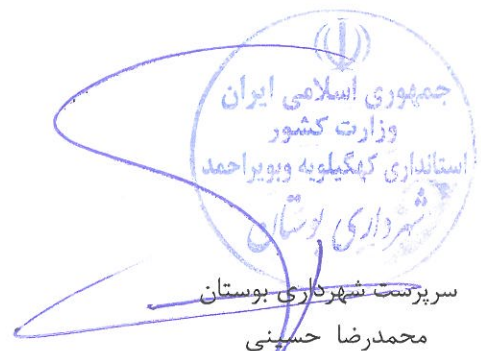 جمهوری اسلامی ایران
وزارت کشور
استانداری کهگیلویه وبویراحمد
شهرداری بوستان
سرپرست شهرداری بوستان
محمدرضا حسینی